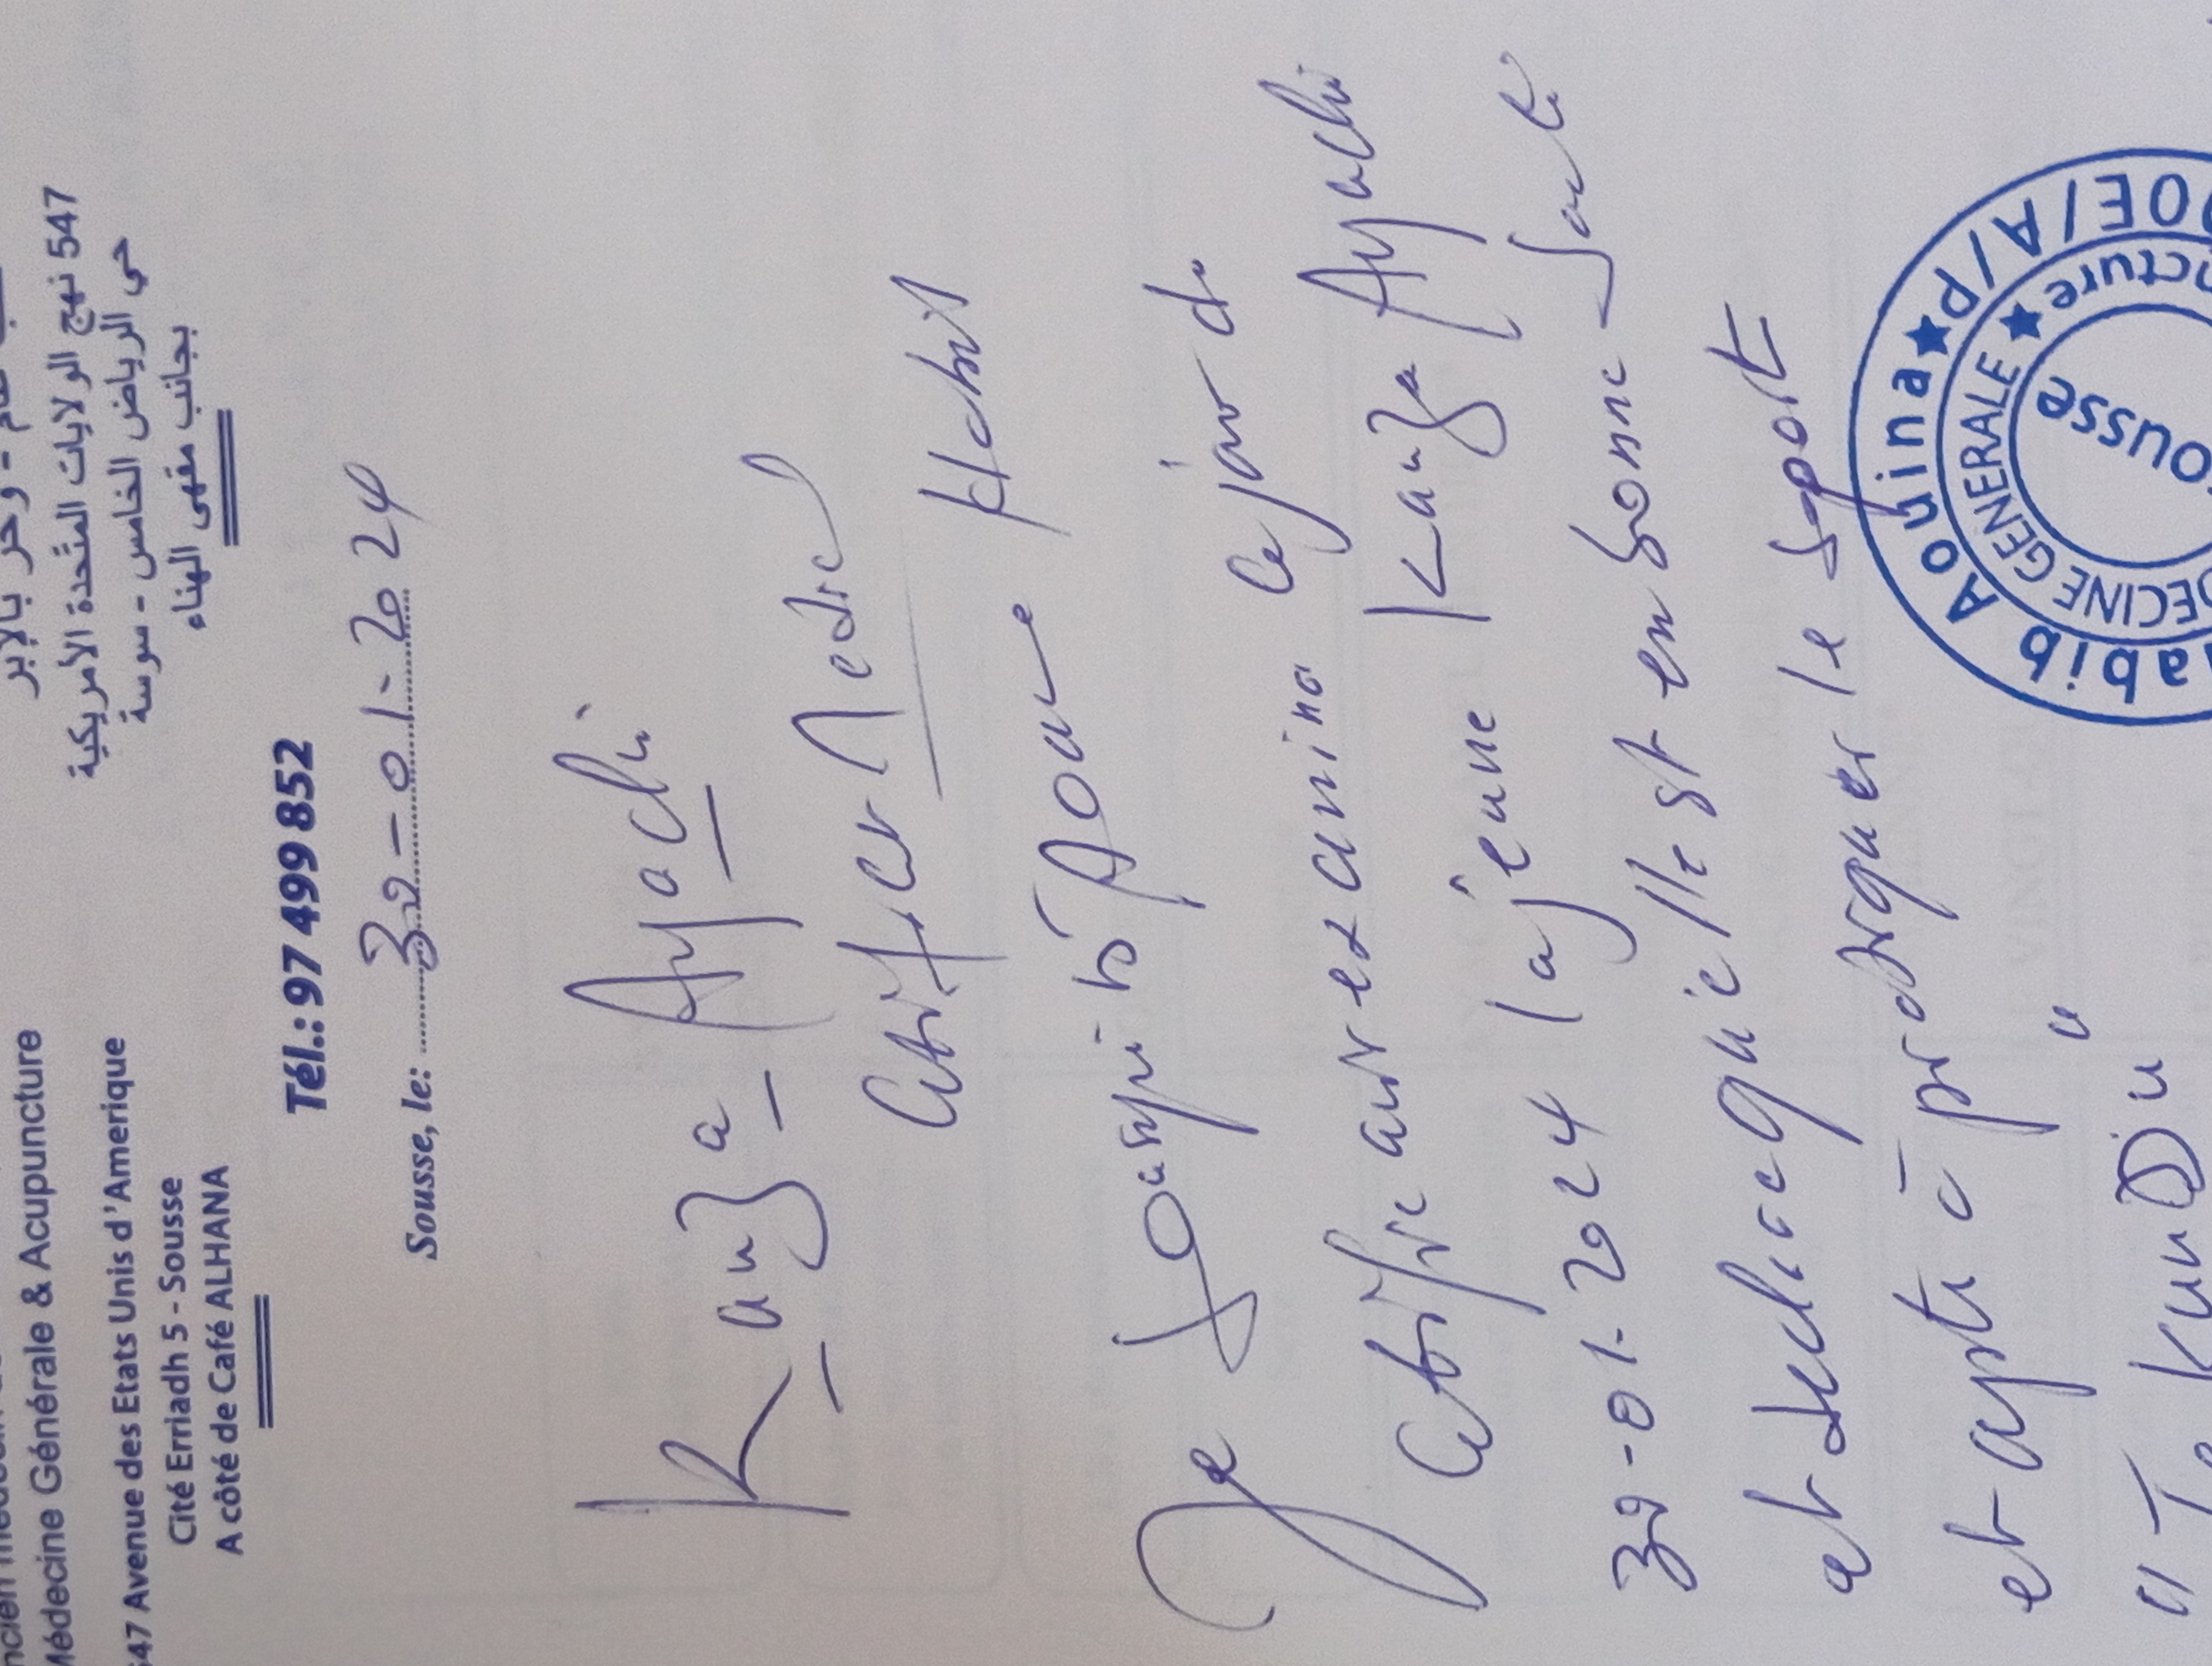 Médecine Générale & Acupuncture
547 Avenue des Etats Unis d'Amerique
Cité Erriadh 5 - Sousse
A côté de Café ALHANA
وخز بالإبر
547 نهج الولايات المتّحدة الأمريكية
حي الرياض الخامس - سوسة
بجانب مقهى الهناء
Tél.: 97 499 852
Sousse, le: 30-01-2024
Kanza Ayachi
Certificat Medical
Je Soussigné Aouina Habib
Certifie avoir examiné ce jour du
30-01-2024 la jeune Kanza Ayachi
et declare qu'elle est en bonne Santé
et apte à pratiquer le Sport
"Te Kun Do"
Habib Aouina ★ P/A/
MEDECINE GENERALE ★
Sousse